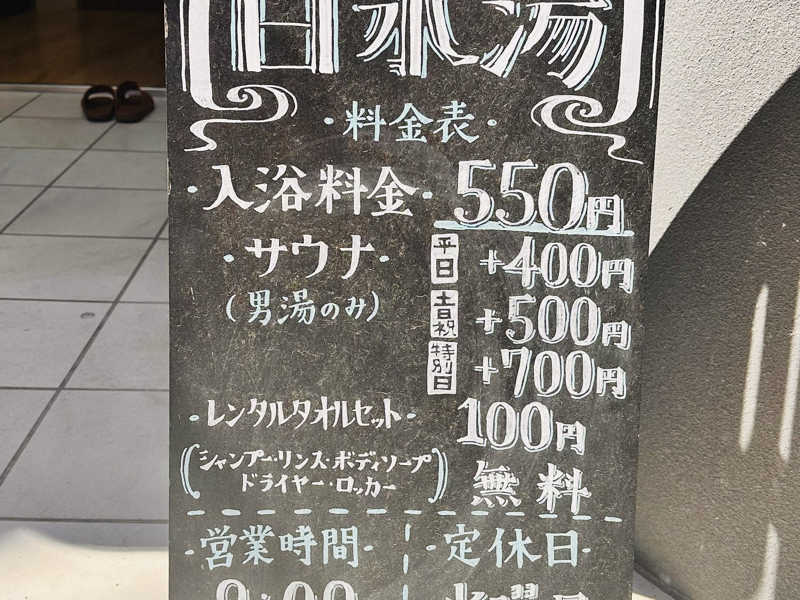 料金表
・入浴料金・ 550円
・サウナ・ 平日 +400円
(男湯のみ) 土日祝 +500円
特別日 +700円
・レンタルタオルセット・ 100円
(シャンプー・リンス・ボディソープ
ドライヤー・ロッカー) 無料
・営業時間・ ・定休日・